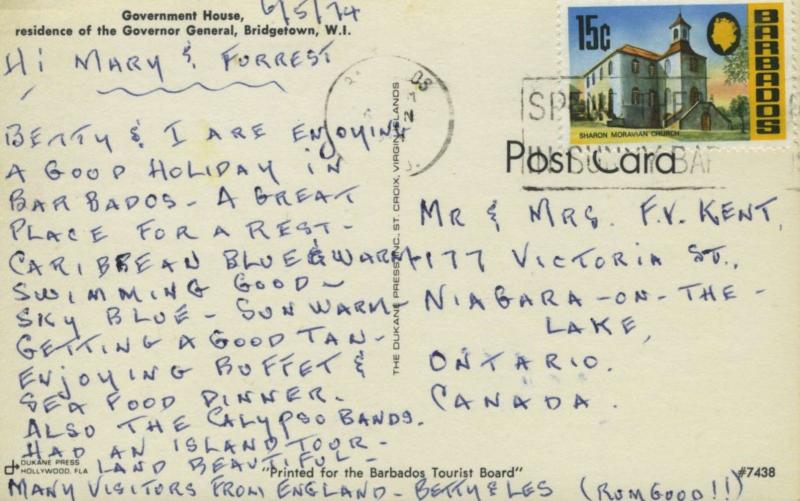 Government House,
residence of the Governor General, Bridgetown, W.I.
6/5/74
Hi MARY & FORREST
BETTY & I ARE ENJOYING
A GOOD HOLIDAY IN
BARBADOS - A GREAT
PLACE FOR A REST -
CARIBBEAN BLUE & WARM -
SWIMMING GOOD -
SKY BLUE - SUN WARM -
GETTING A GOOD TAN -
ENJOYING BUFFET &
SEA FOOD DINNER.
ALSO THE CALYPSO BANDS.
HAD AN ISLAND TOUR -
LAND BEAUTIFUL -
MANY VISITORS FROM ENGLAND - BETTY & LES (RUM GOOD!!)
THE DUKANE PRESS, INC., ST. CROIX, VIRGIN ISLANDS
15c
BARBADOS
SHARON MORAVIAN CHURCH
IN SUNNY BAR
Post Card
MR & MRS. F.V. KENT,
177 VICTORIA ST.,
NIAGARA-ON-THE-
LAKE,
ONTARIO.
CANADA.
DUKANE PRESS
HOLLYWOOD, FLA
"Printed for the Barbados Tourist Board"
#7438